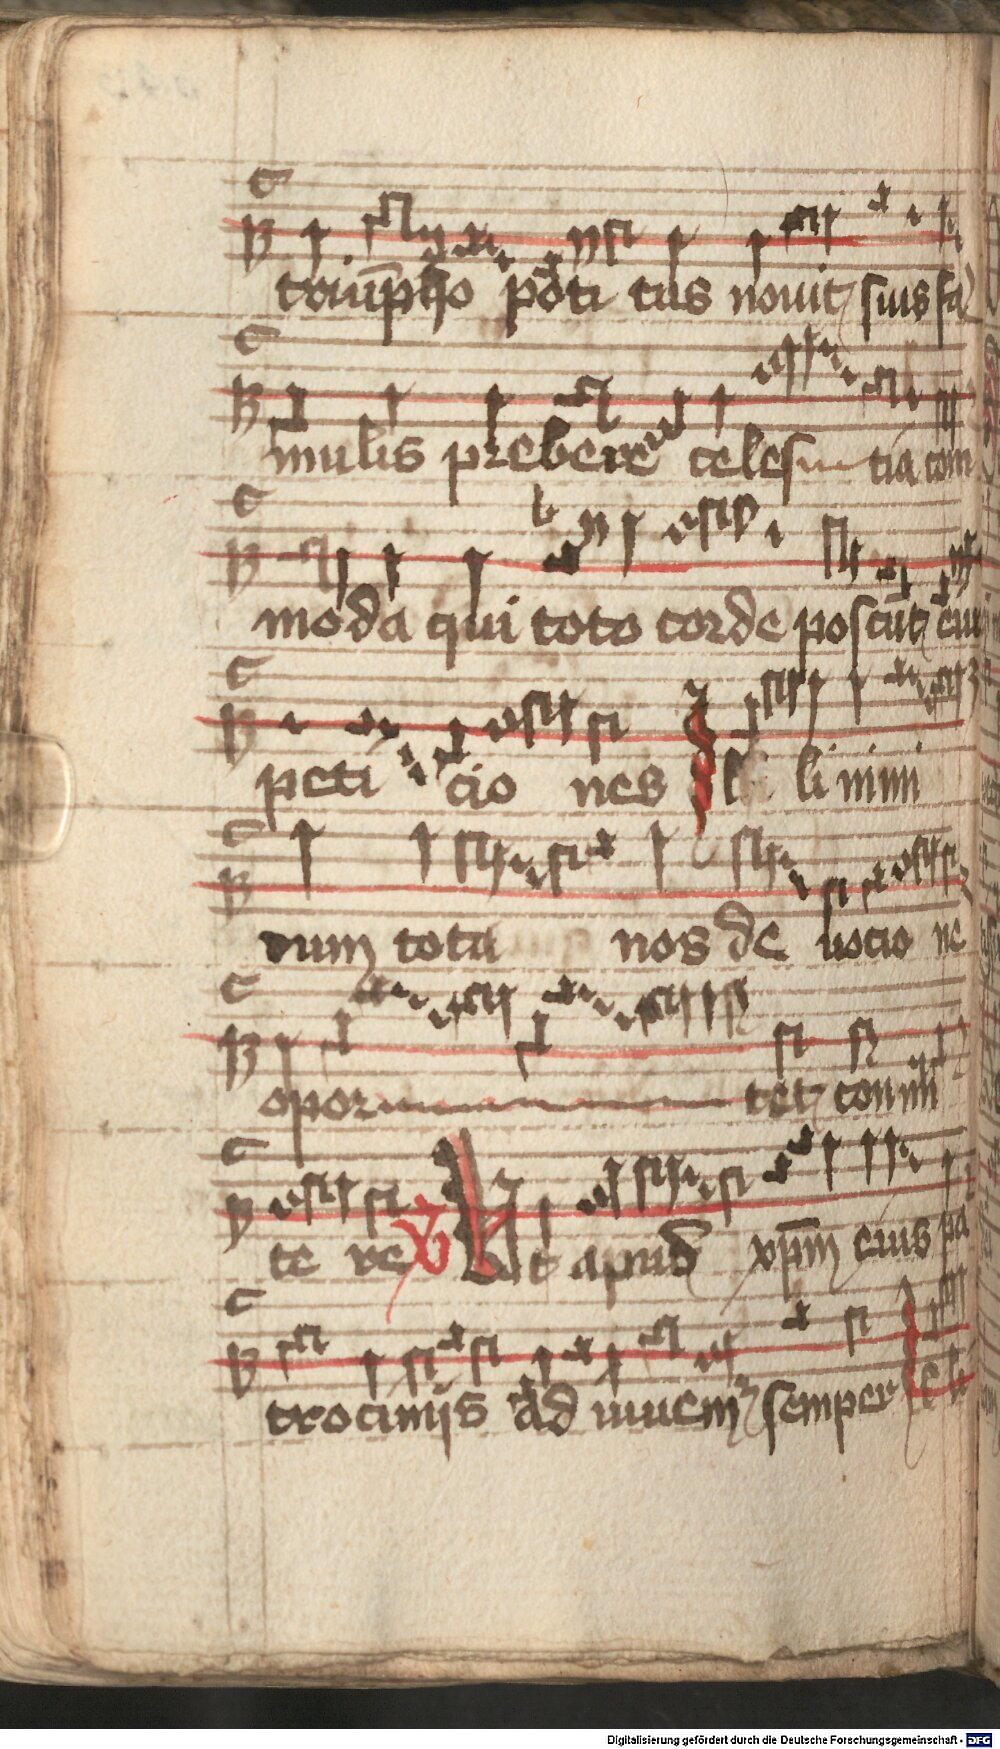 triūpho poti tus nouit suis fa
mulis prebere celes tia com
moda qui toto corde poscūt eius
peti cio nes Il li nimi
rum tota nos de uocio ne
opor tet conmi
te re V Ut apud xpm eius pa
trocinijs ad iuuem semper
Digitalisierung gefördert durch die Deutsche Forschungsgemeinschaft - DFG